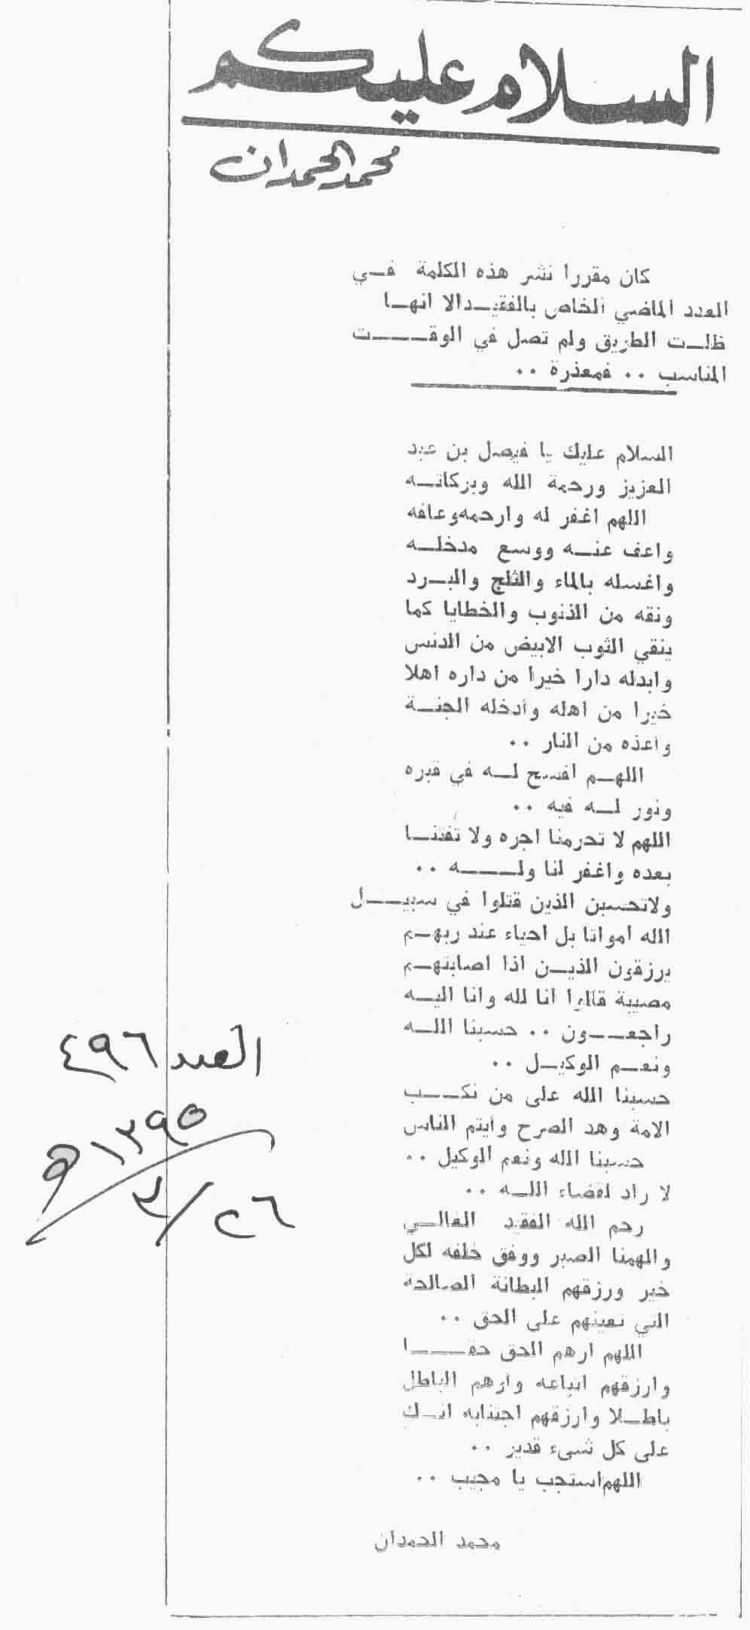 السلام عليكم
محمد الحمدان
كان مقررا نشر هذه الكلمة في
العدد الماضي الخاص بالفقيد الا انها
ظلت الطريق ولم تصل في الوقت
المناسب .. فمعذرة ..
السلام عليك يا فيصل بن عبد
العزيز ورحمة الله وبركاته
اللهم اغفر له وارحمه وعافه
واعف عنه ووسع مدخله
واغسله بالماء والثلج والبرد
ونقه من الذنوب والخطايا كما
ينقي الثوب الابيض من الدنس
وابدله دارا خيرا من داره اهلا
خيرا من اهله وأدخله الجنة
واعذه من النار ..
اللهم افسح له في قبره
ونور له فيه ..
اللهم لا تحرمنا اجره ولا تفتنا
بعده واغفر لنا وله ..
ولاتحسبن الذين قتلوا في سبيل
الله امواتا بل احياء عند ربهم
يرزقون الذين اذا اصابتهم
مصيبة قالوا انا لله وانا اليه
راجعون .. حسبنا الله
ونعم الوكيل ..
حسبنا الله على من نكب
الامة وهد الصرح وأيتم الناس
حسبنا الله ونعم الوكيل ..
لا راد لقضاء الله ..
رحم الله الفقيد الغالي
والهمنا الصبر ووفق خلفه لكل
خير ورزقهم البطانة الصالحة
التي تعينهم على الحق ..
اللهم ارهم الحق حقا
وارزقهم اتباعه وأرهم الباطل
باطلا وارزقهم اجتنابه انك
على كل شىء قدير ..
اللهم استجب يا مجيب ..
محمد الحمدان
العدد ٤٩٦
١٣٩٥هـ
٢٦/٣